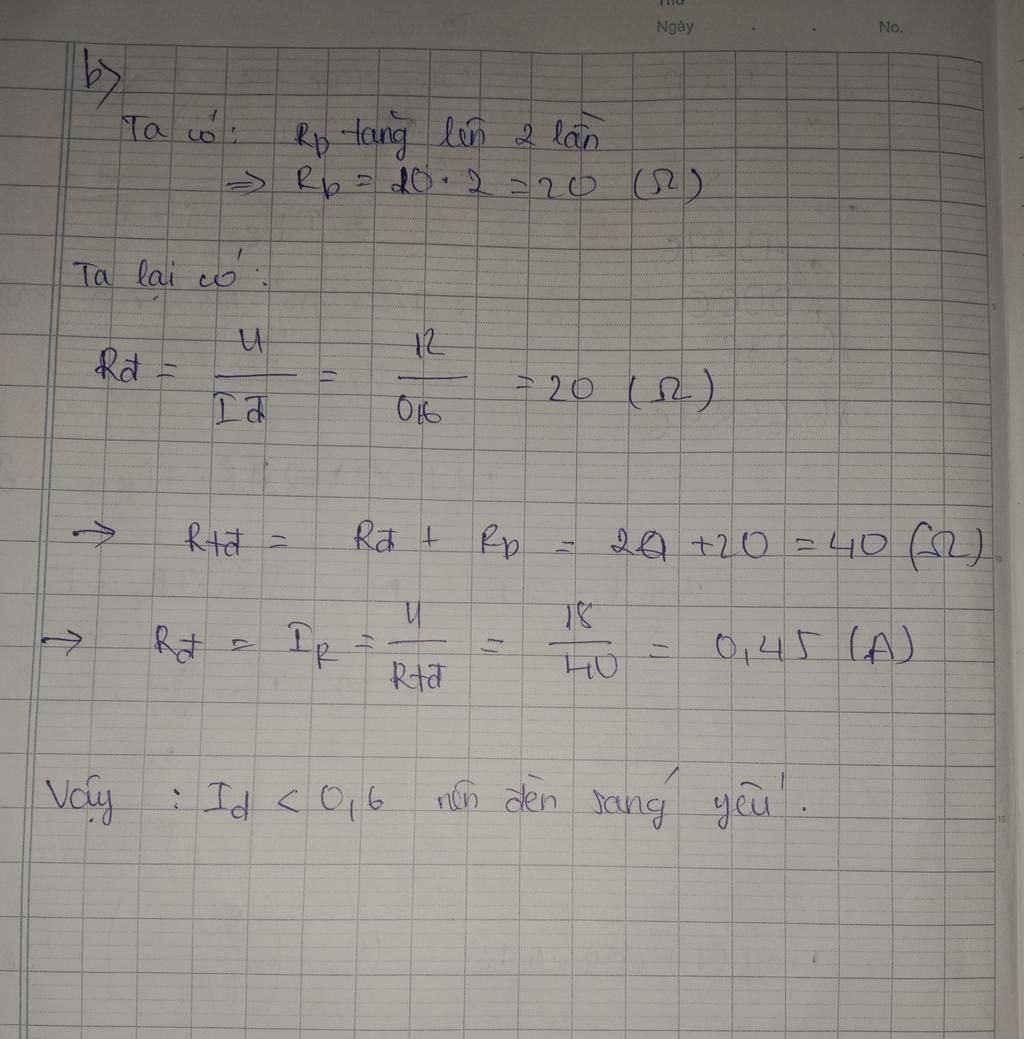 Thứ
Ngày . . No.
b)
Ta có: Rb tăng lên 2 lần
=> Rb = 20 . 2 = 20 (Ω)
Ta lại có:
Rđ = U / Iđ = 12 / 0,6 = 20 (Ω)
→ Rtđ = Rđ + Rb = 20 + 20 = 40 (Ω)
→ Rđ = IR = U / Rtđ = 18 / 40 = 0,45 (A)
Vậy : Id < 0,6 nên đèn sáng yếu.